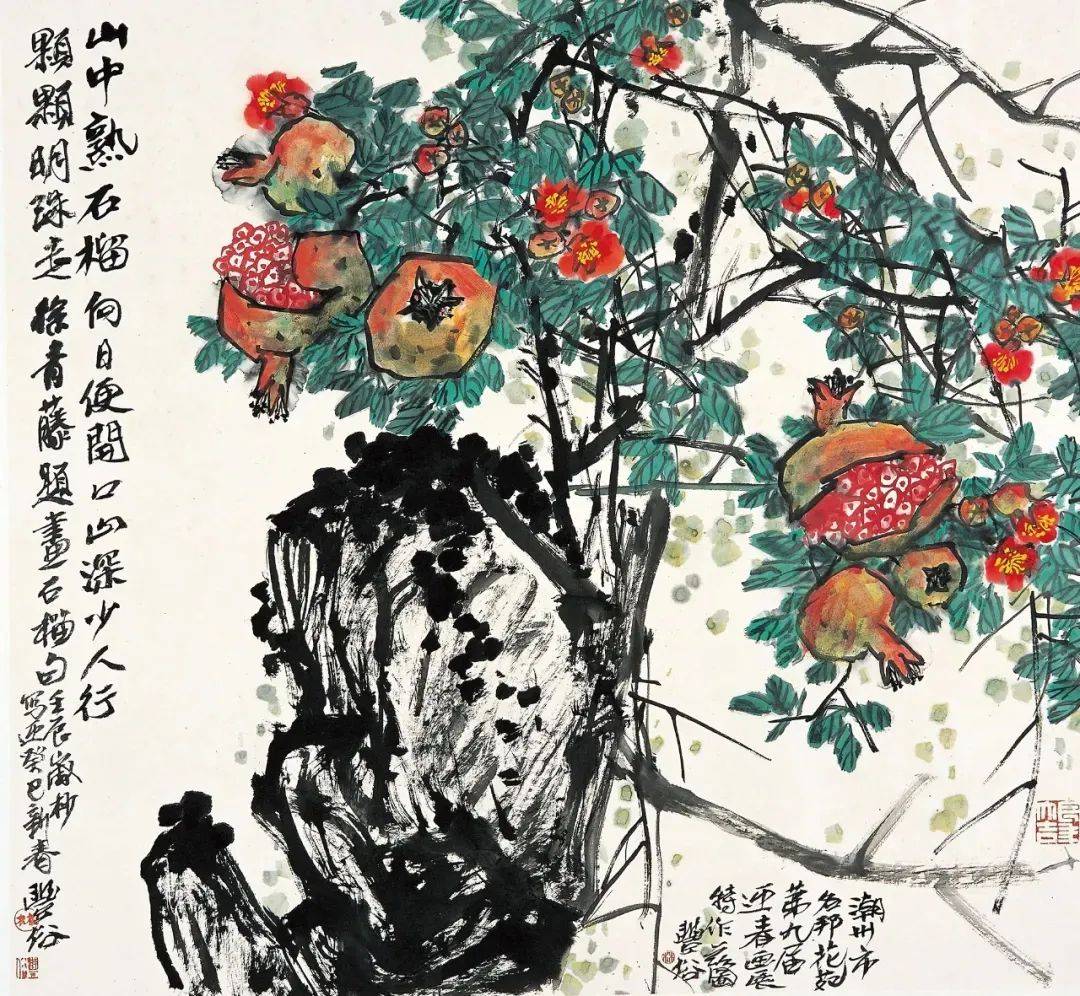 山中熟石榴向日便開口山深少人行
顆顆明珠走徐青藤題畫石榴句
壬辰歲杪
寫迎癸巳新春豐裕
潮州市
名邦花苑
第九届
迎春画展
特作此圖
豐裕